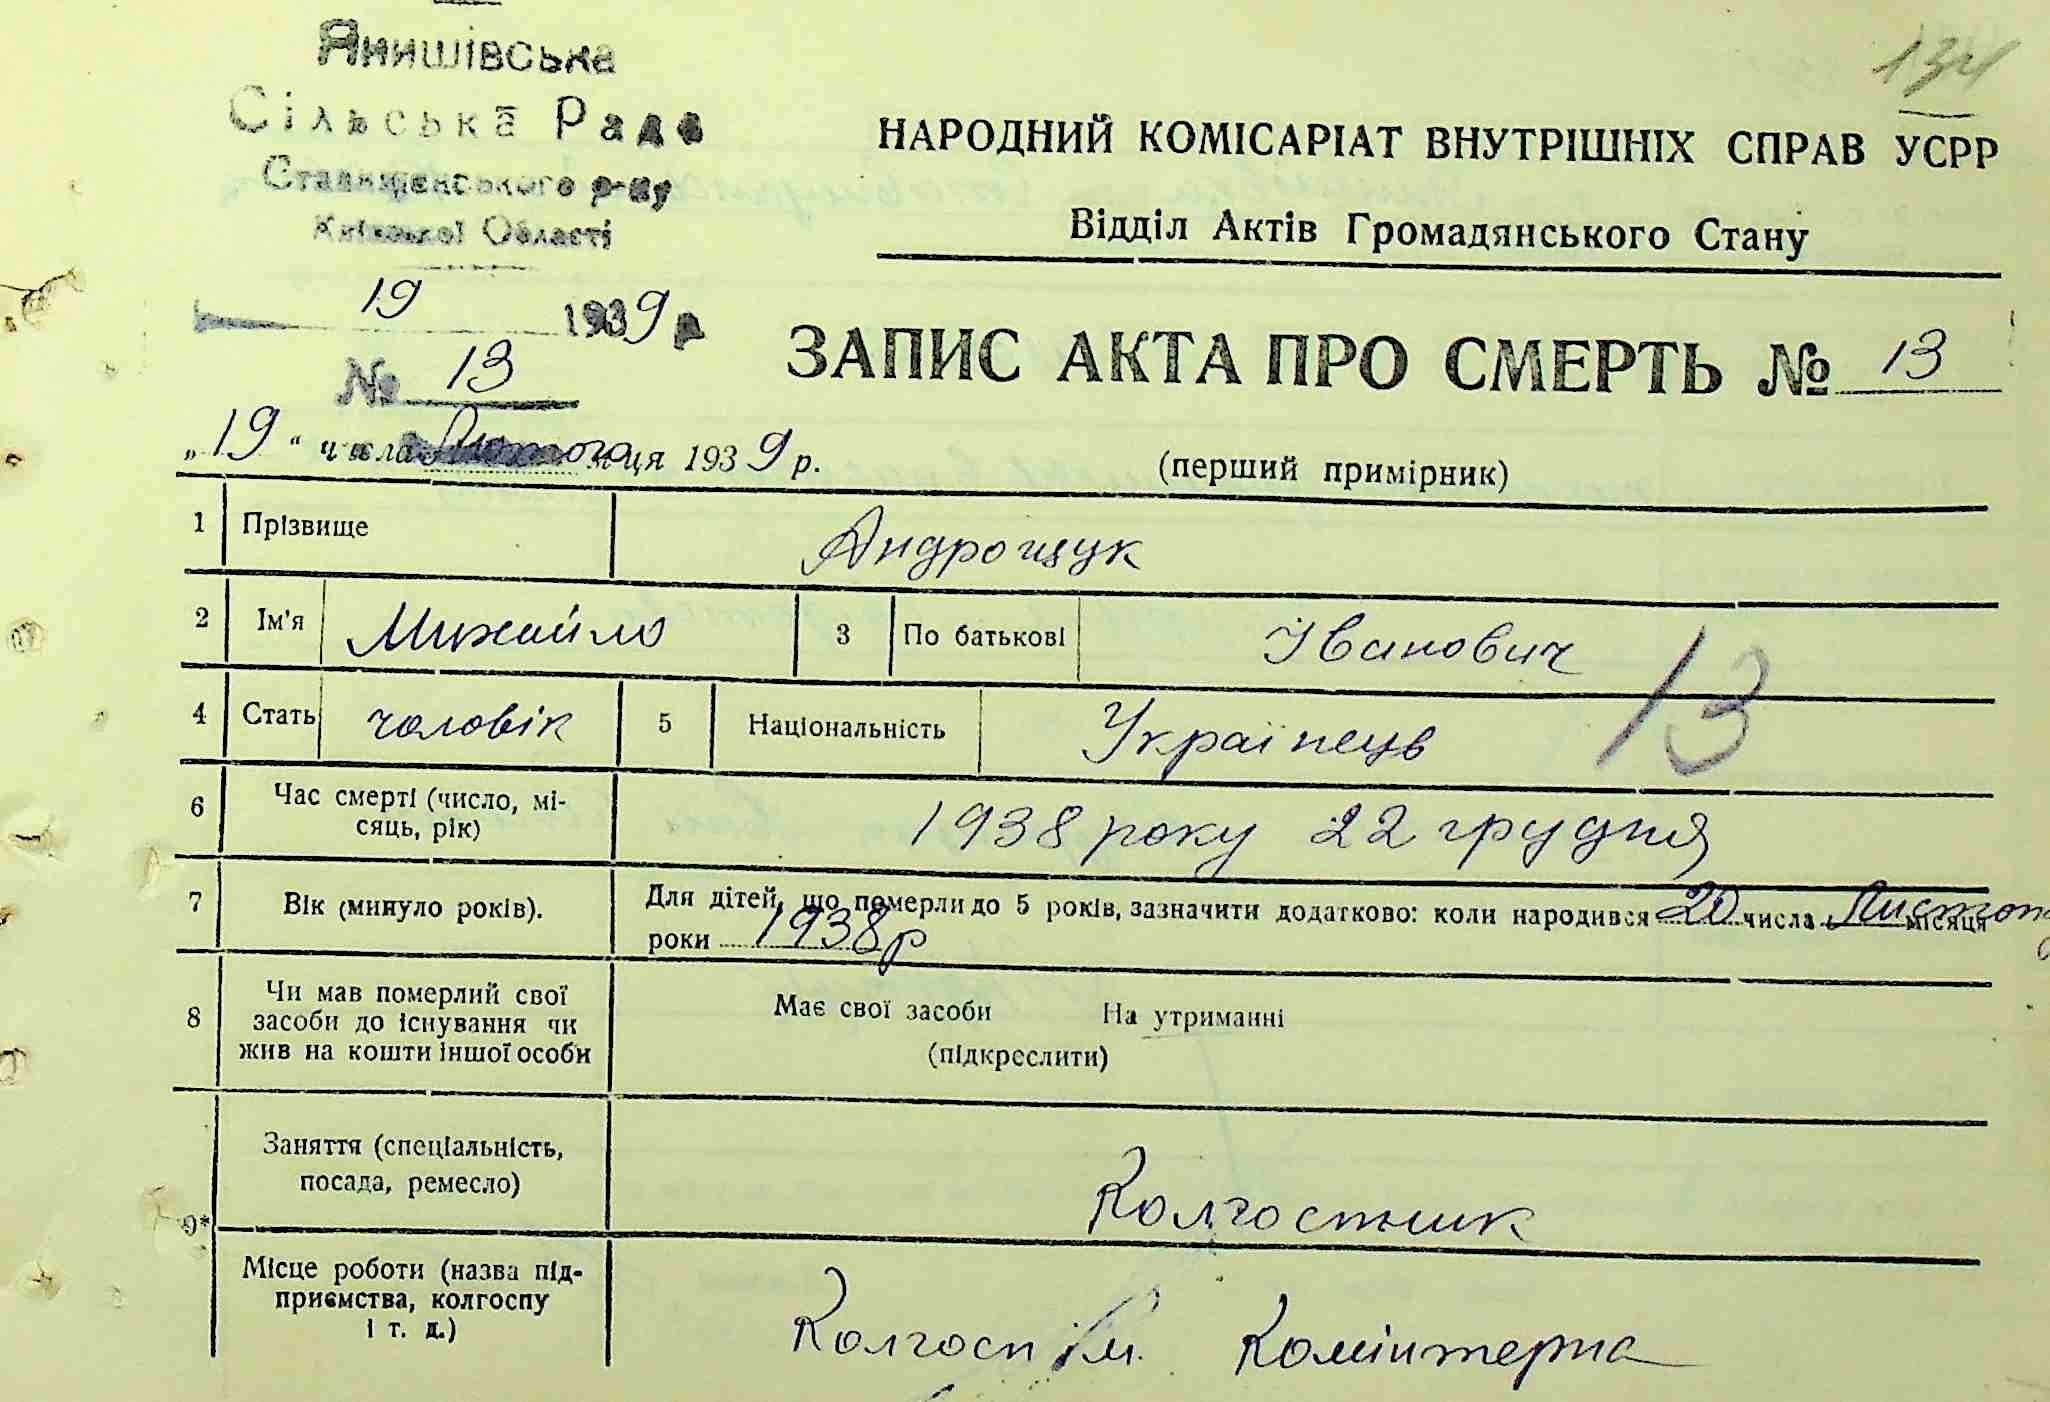 Янишівська
Сільська Рада
Ставищенського р-ну
Київської Області
134
НАРОДНИЙ КОМІСАРІАТ ВНУТРІШНІХ СПРАВ УСРР
Відділ Актів Громадянського Стану
19 1939 р
№ 13
ЗАПИС АКТА ПРО СМЕРТЬ № 13
„19“ числа Лютого м-ця 1939 р.
(перший примірник)
1 Прізвище Андрощук
2 Ім'я Михайло 3 По батькові Іванович
13
4 Стать чоловік 5 Національність Українець
6 Час смерті (число, мі-
сяць, рік) 1938 року 22 грудня
7 Вік (минуло років). Для дітей, що померли до 5 років, зазначити додатково: коли народився 20 числа Листоп місяця
роки 1938 р
8 Чи мав померлий свої
засоби до існування чи
жив на кошти іншої особи
Має свої засоби На утриманні
(підкреслити)
9* Заняття (спеціальність,
посада, ремесло) Колгостник
Місце роботи (назва під-
приємства, колгоспу
і т. д.) Колгосп ім. Комінтерна